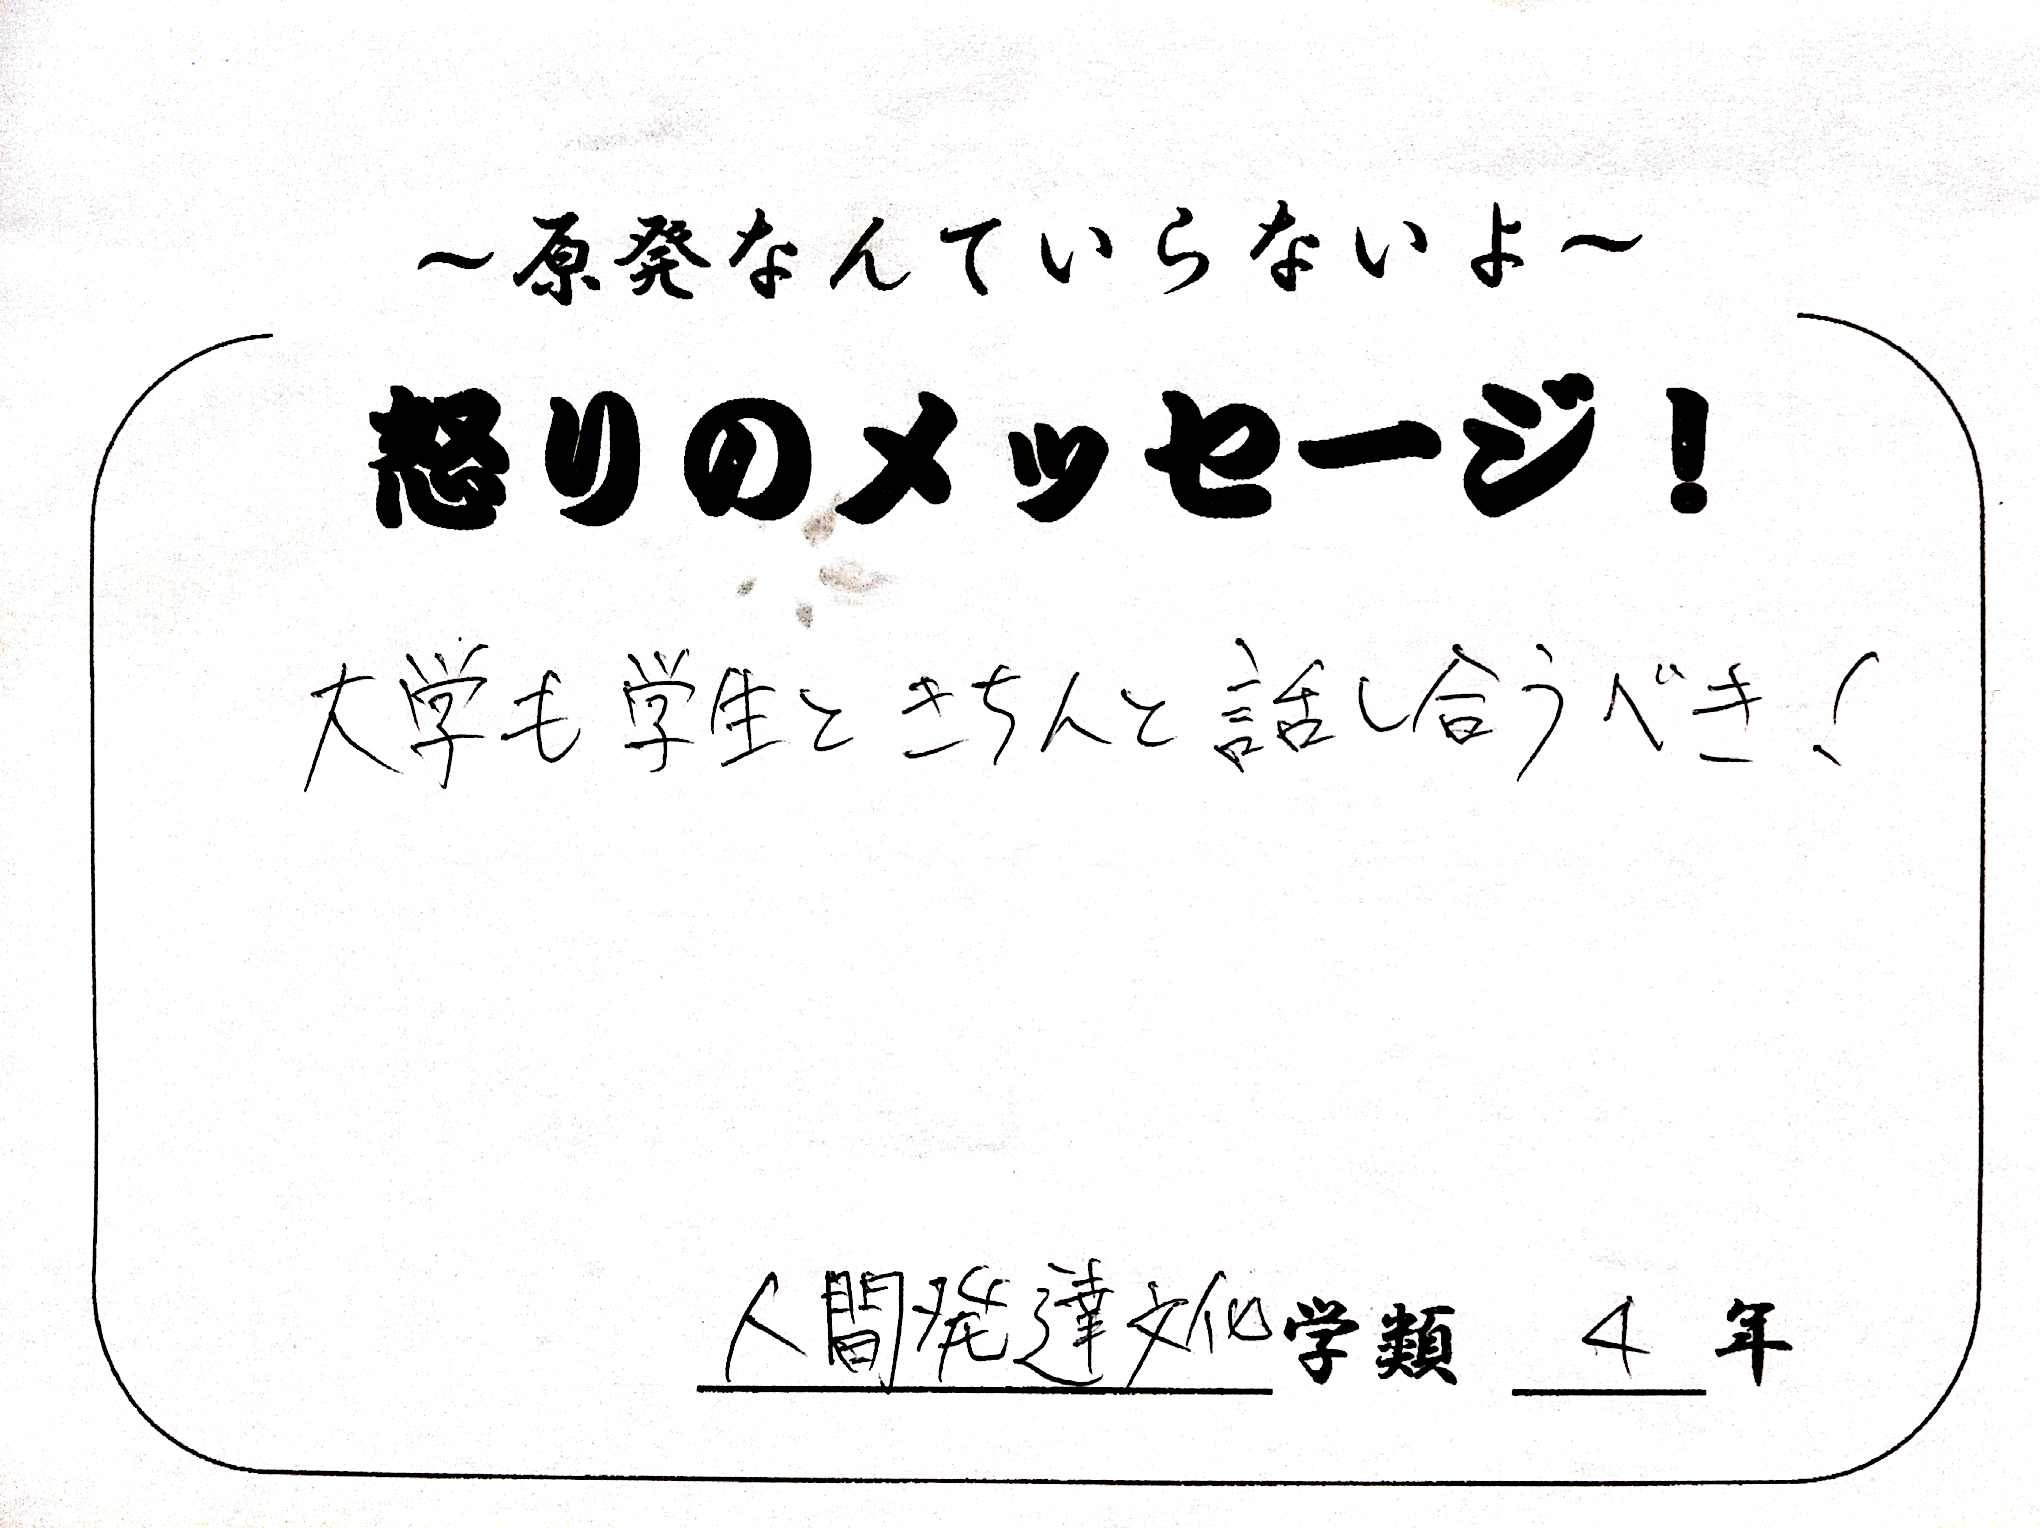 ～原発なんていらないよ～
怒りのメッセージ！
大学も学生ときちんと話し合うべき！
人間発達文化学類 4年